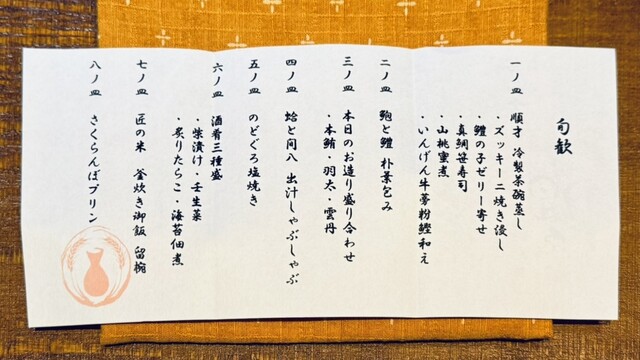 旬歓
一ノ皿 順才 冷製茶碗蒸し
・ズッキーニ焼き浸し
・鱧の子ゼリー寄せ
・真鯛笹寿司
・山桃蜜煮
・いんげん牛蒡粉鰹和え
二ノ皿 鮑と鱧 朴葉包み
三ノ皿 本日のお造り盛り合わせ
・本鮪・羽太・雲丹
四ノ皿 蛤と間八 出汁しゃぶしゃぶ
五ノ皿 のどぐろ塩焼き
六ノ皿 酒肴三種盛
・柴漬け・壬生菜
・炙りたらこ・海苔佃煮
七ノ皿 匠の米 釜炊き御飯 留椀
八ノ皿 さくらんぼプリン